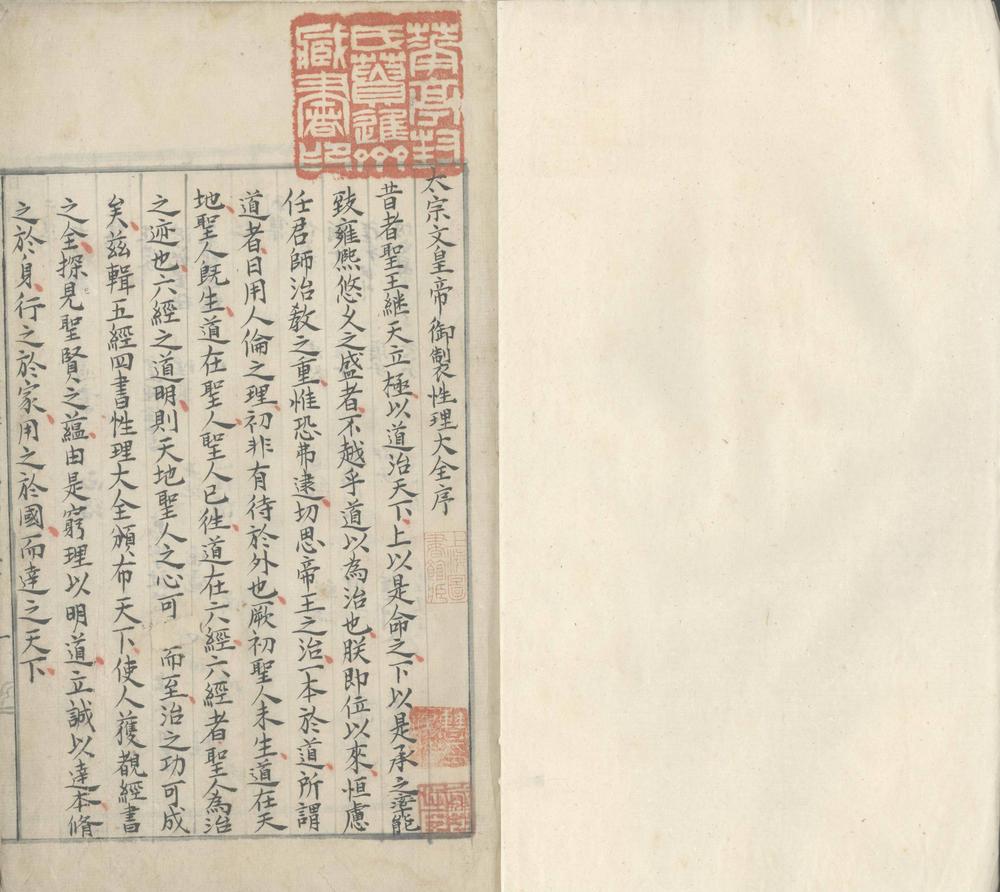 華亭封
氏蕢進齋
藏書印
太宗文皇帝御製性理大全序
昔者聖王継天立極以道治天下上以是命之下以是承之遂能
致雍熈悠久之盛者不越乎道以為治也朕即位以來恒慮
任君師治教之重惟恐弗逮切思帝王之治一本於道所謂
道者日用人倫之理初非有待於外也厥初聖人未生道在天
地聖人既生道在聖人聖人已徃道在六經六經者聖人為治
之迹也六經之道明則天地聖人之心可 而至治之功可成
矣茲輯五經四書性理大全頒布天下使人獲覩經書
之全探見聖賢之蘊由是窮理以明道立誠以達本脩
之於身行之於家用之於國而達之天下